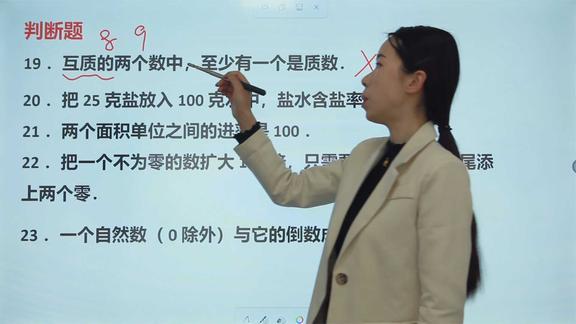 判断题
8 9
19．互质的两个数中，至少有一个是质数． ×
20．把 25 克盐放入 100 克 中，盐水含盐率
21．两个面积单位之间的进 是 100．
22．把一个不为零的数扩大 1 只需 尾添
上两个零．
23．一个自然数（0 除外）与它的倒数